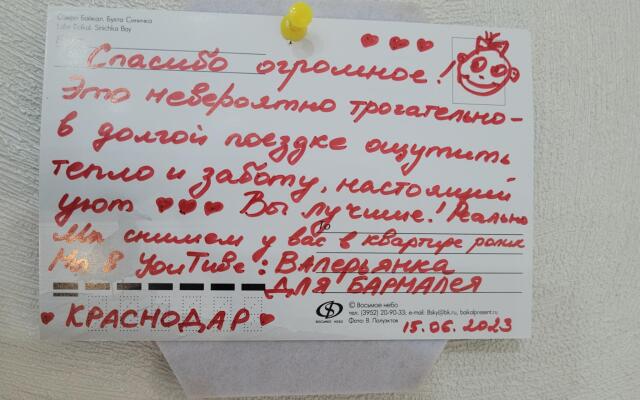 Озеро Байкал. Бухта Синичка
Lake Baikal. Sinichka Bay
Спасибо огромное!
Это невероятно трогательно-
в долгой поездке ощутить
тепло и заботу, настоящий
уют Вы лучшие! Реально
To
Мы снимем у вас в квартире ролик
На в YouTube: Валерьянка
для Бармалея
КРАСНОДАР
ВОСЬМОЕ НЕБО
© Восьмое небо
тел. (3952) 20-90-33; e-mail: 8sky@bk.ru, baikalpresent.ru
Фото: В. Полуэктов
15.06.2023